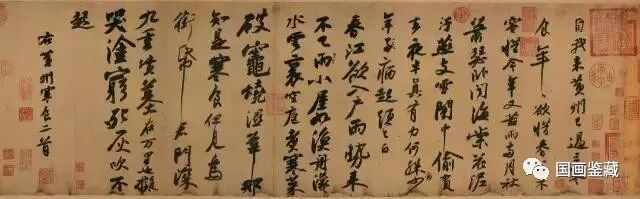 自我來黃州已過三寒
食年々欲惜春々去不
容惜今年又苦雨兩月秋
蕭瑟臥聞海棠花泥
汙燕支雪闇中偷負
去夜半真有力何殊少
年子病起頭已白
春江欲入戶雨勢來
不已雨小屋如漁舟濛々
水雲裏空庖煮寒菜
破竈燒濕葦那
知是寒食但見烏
銜帋君門深
九重墳墓在万里也擬
哭塗窮死灰吹不
起
右黃州寒食二首
国画鉴藏